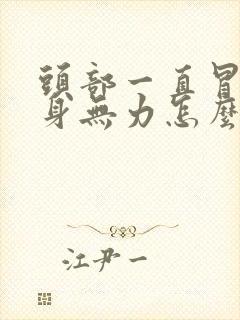 頭部一直冒
身無力怎麼
江尹一